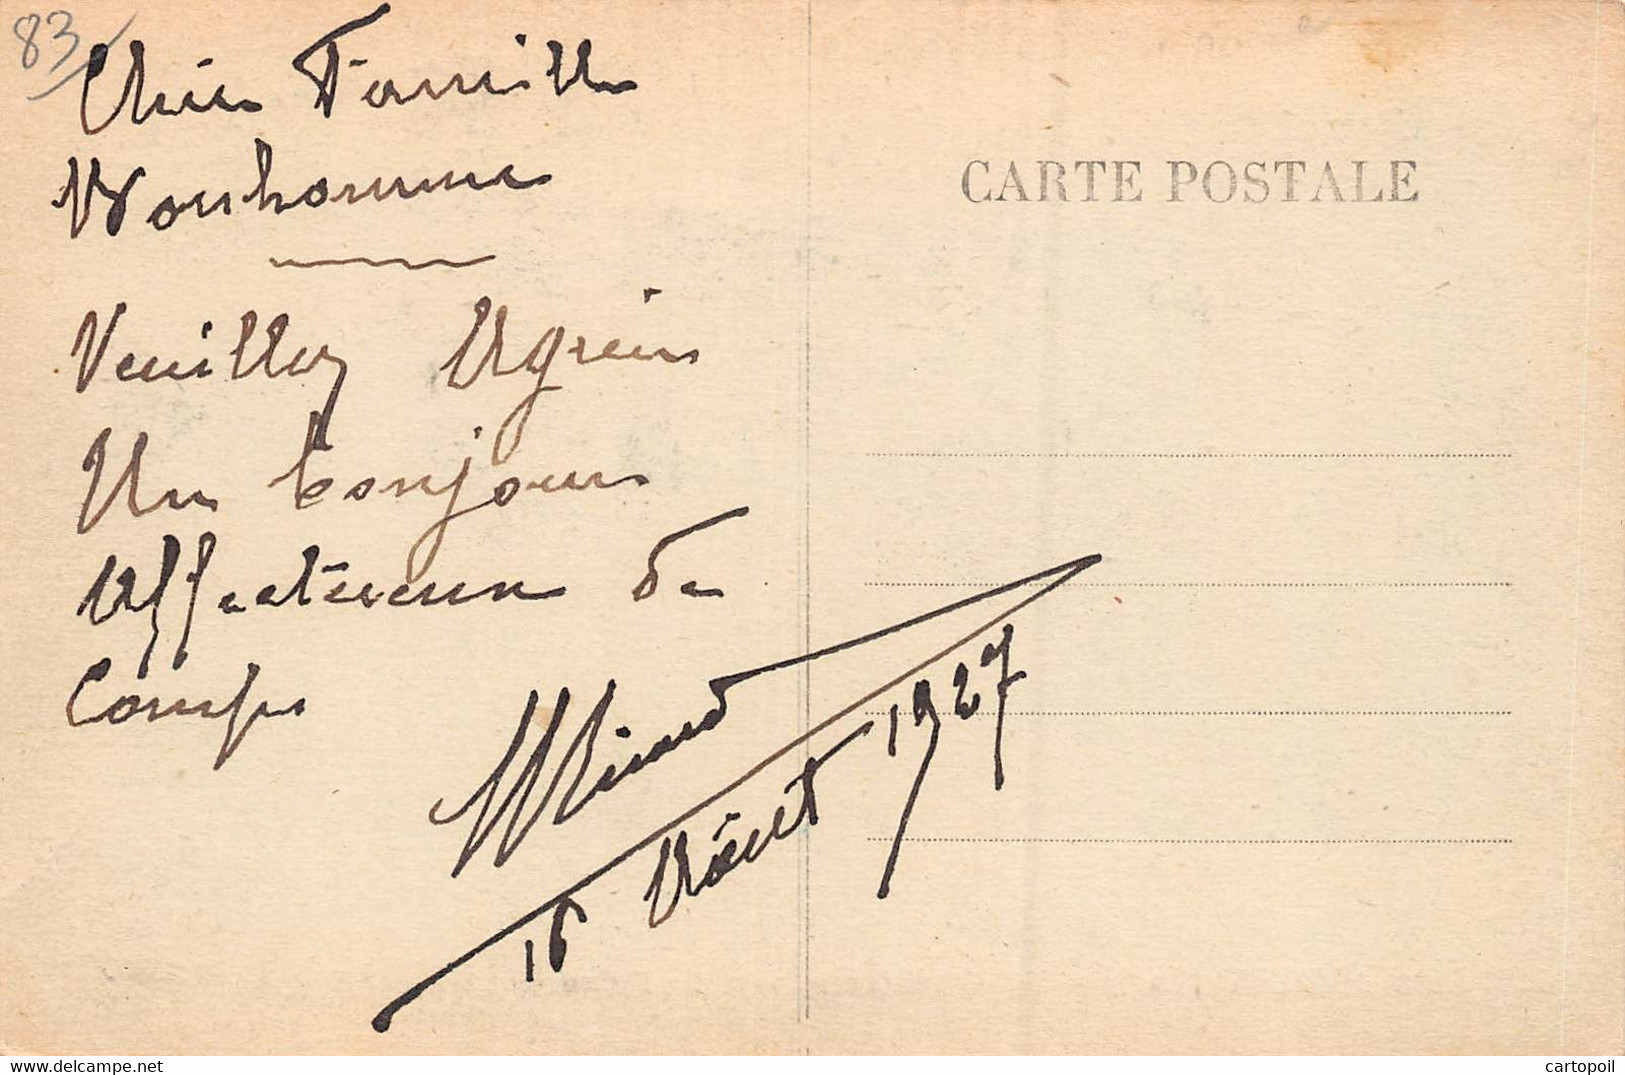 83
Chère Famille
Bonhomme
Veuillez Agréer
Un bonjour
Affectueux de
Comps
16 Août 1927
CARTE POSTALE
www.delcampe.net
cartopoil